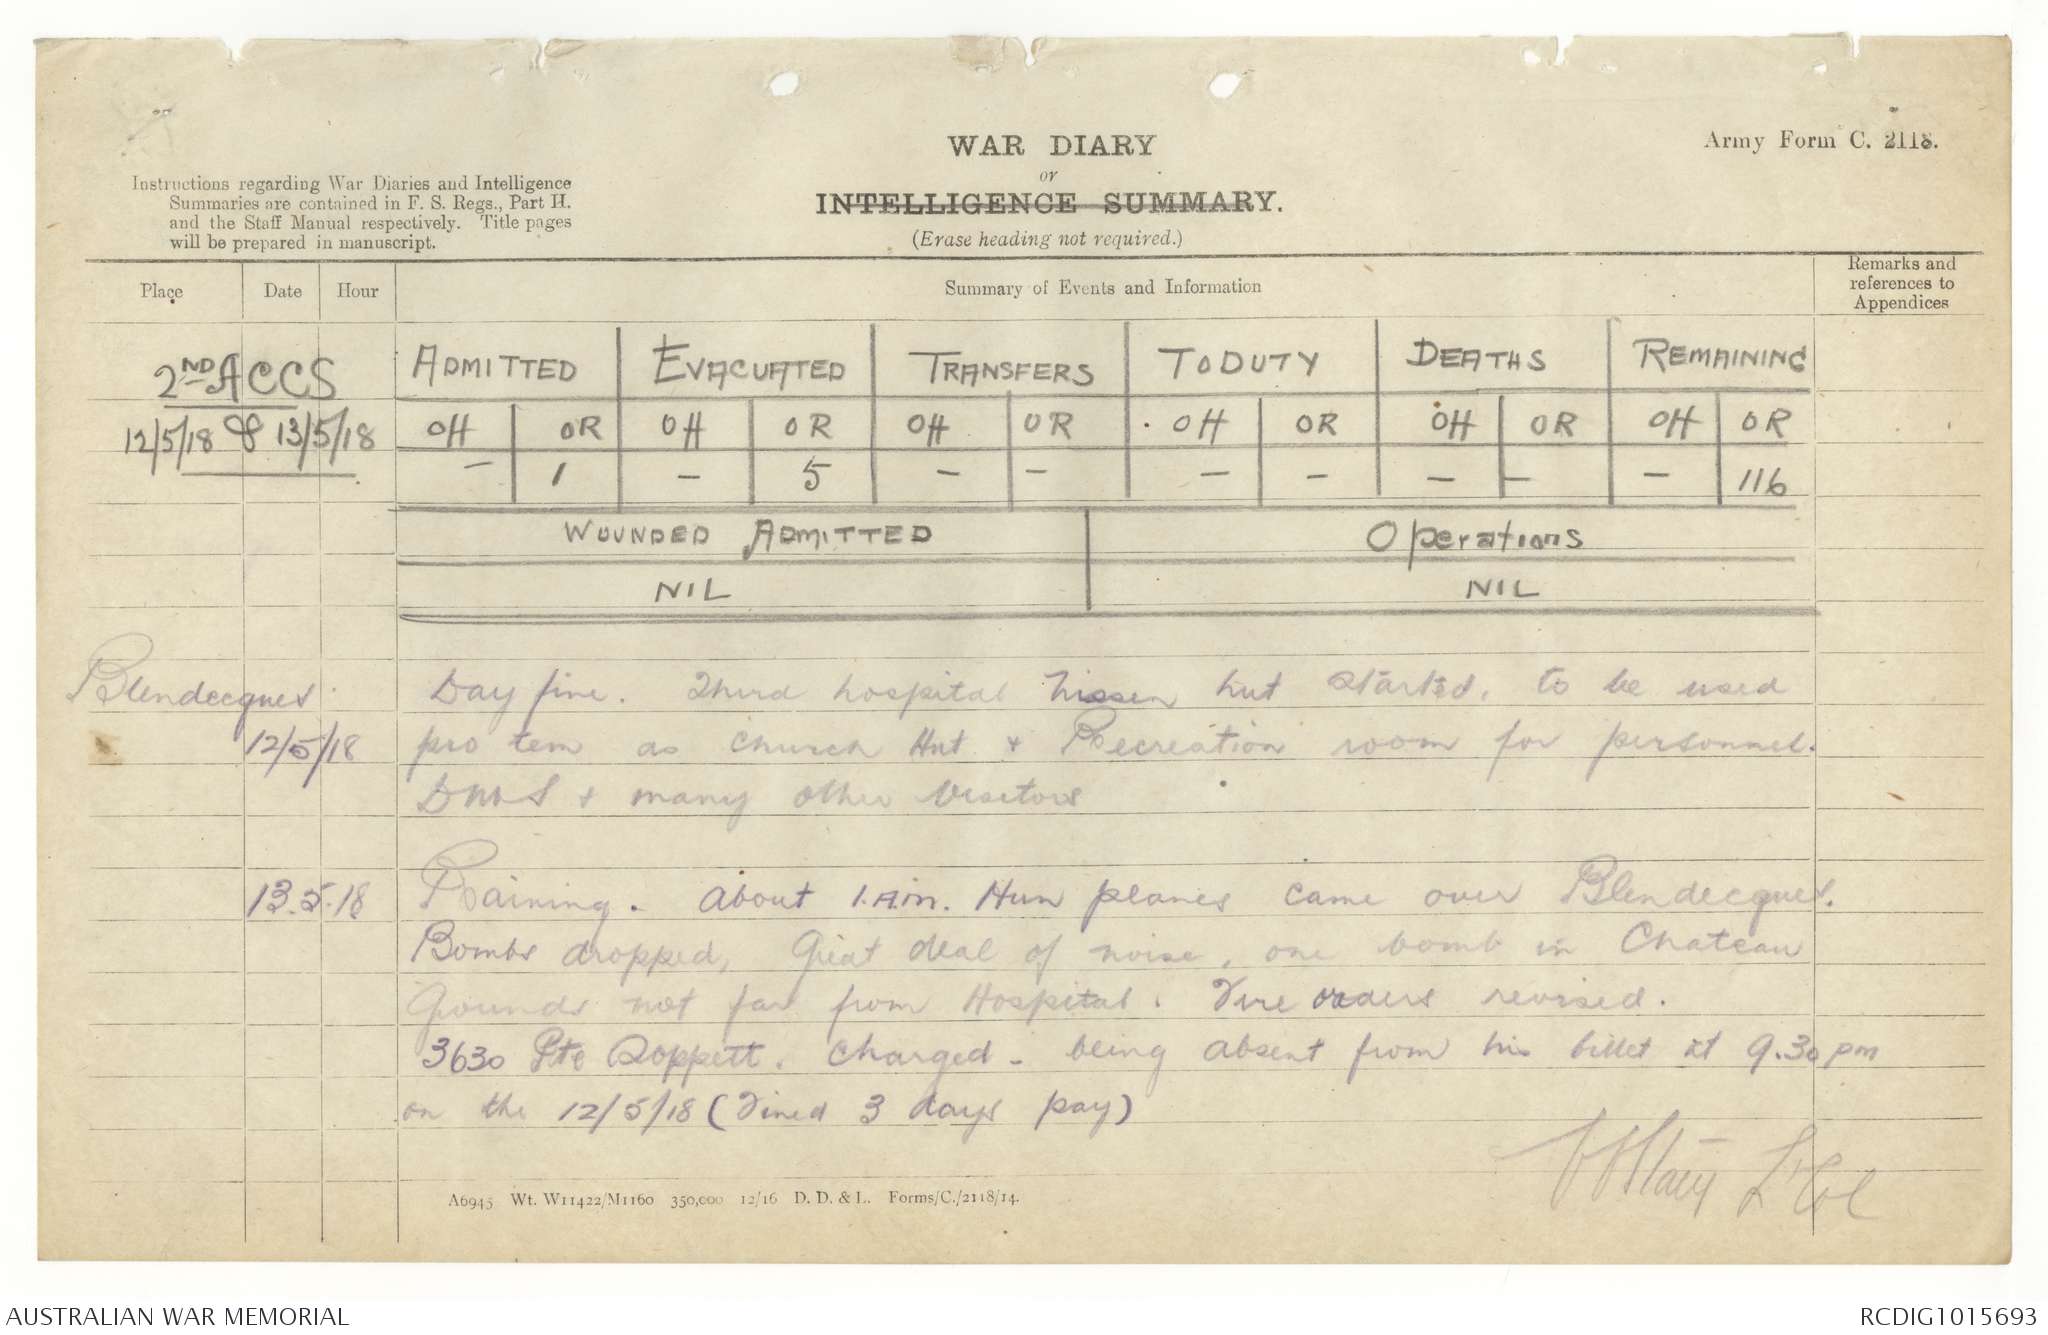 WAR DIARY
or
INTELLIGENCE SUMMARY.
(Erase heading not required.)
Army Form C. 2118.
Instructions regarding War Diaries and Intelligence
Summaries are contained in F. S. Regs., Part II.
and the Staff Manual respectively. Title pages
will be prepared in manuscript.
Place Date Hour Summary of Events and Information Remarks and references to Appendices
2ND ACCS
12/5/18 & 13/5/18
ADMITTED EVACUATED TRANSFERS TO DUTY DEATHS REMAINING
OH OR OH OR OH OR OH OR OH OR OH OR
- 1 - 5 - - - - - - - 116
WOUNDED ADMITTED Operations
NIL NIL
Blendecques Day fine. Third hospital Nissen hut started, to be used
12/5/18 pro tem as church Hut & Recreation room for personnel.
DMS & many other visitors
13.5.18 Raining. About 1.A.m. Hun planes came over Blendecques.
Bombs dropped, Great deal of noise, one bomb in Chateau
Grounds not far from Hospital. Fire orders revised.
3630 Pte Doppett. Charged - being absent from his billet at 9.30 pm
on the 12/5/18 (Fined 3 days pay)
A6945 Wt. W11422/M1160 350,000 12/16 D. D. & L. Forms/C./2118/14.
AUSTRALIAN WAR MEMORIAL
RCDIG1015693